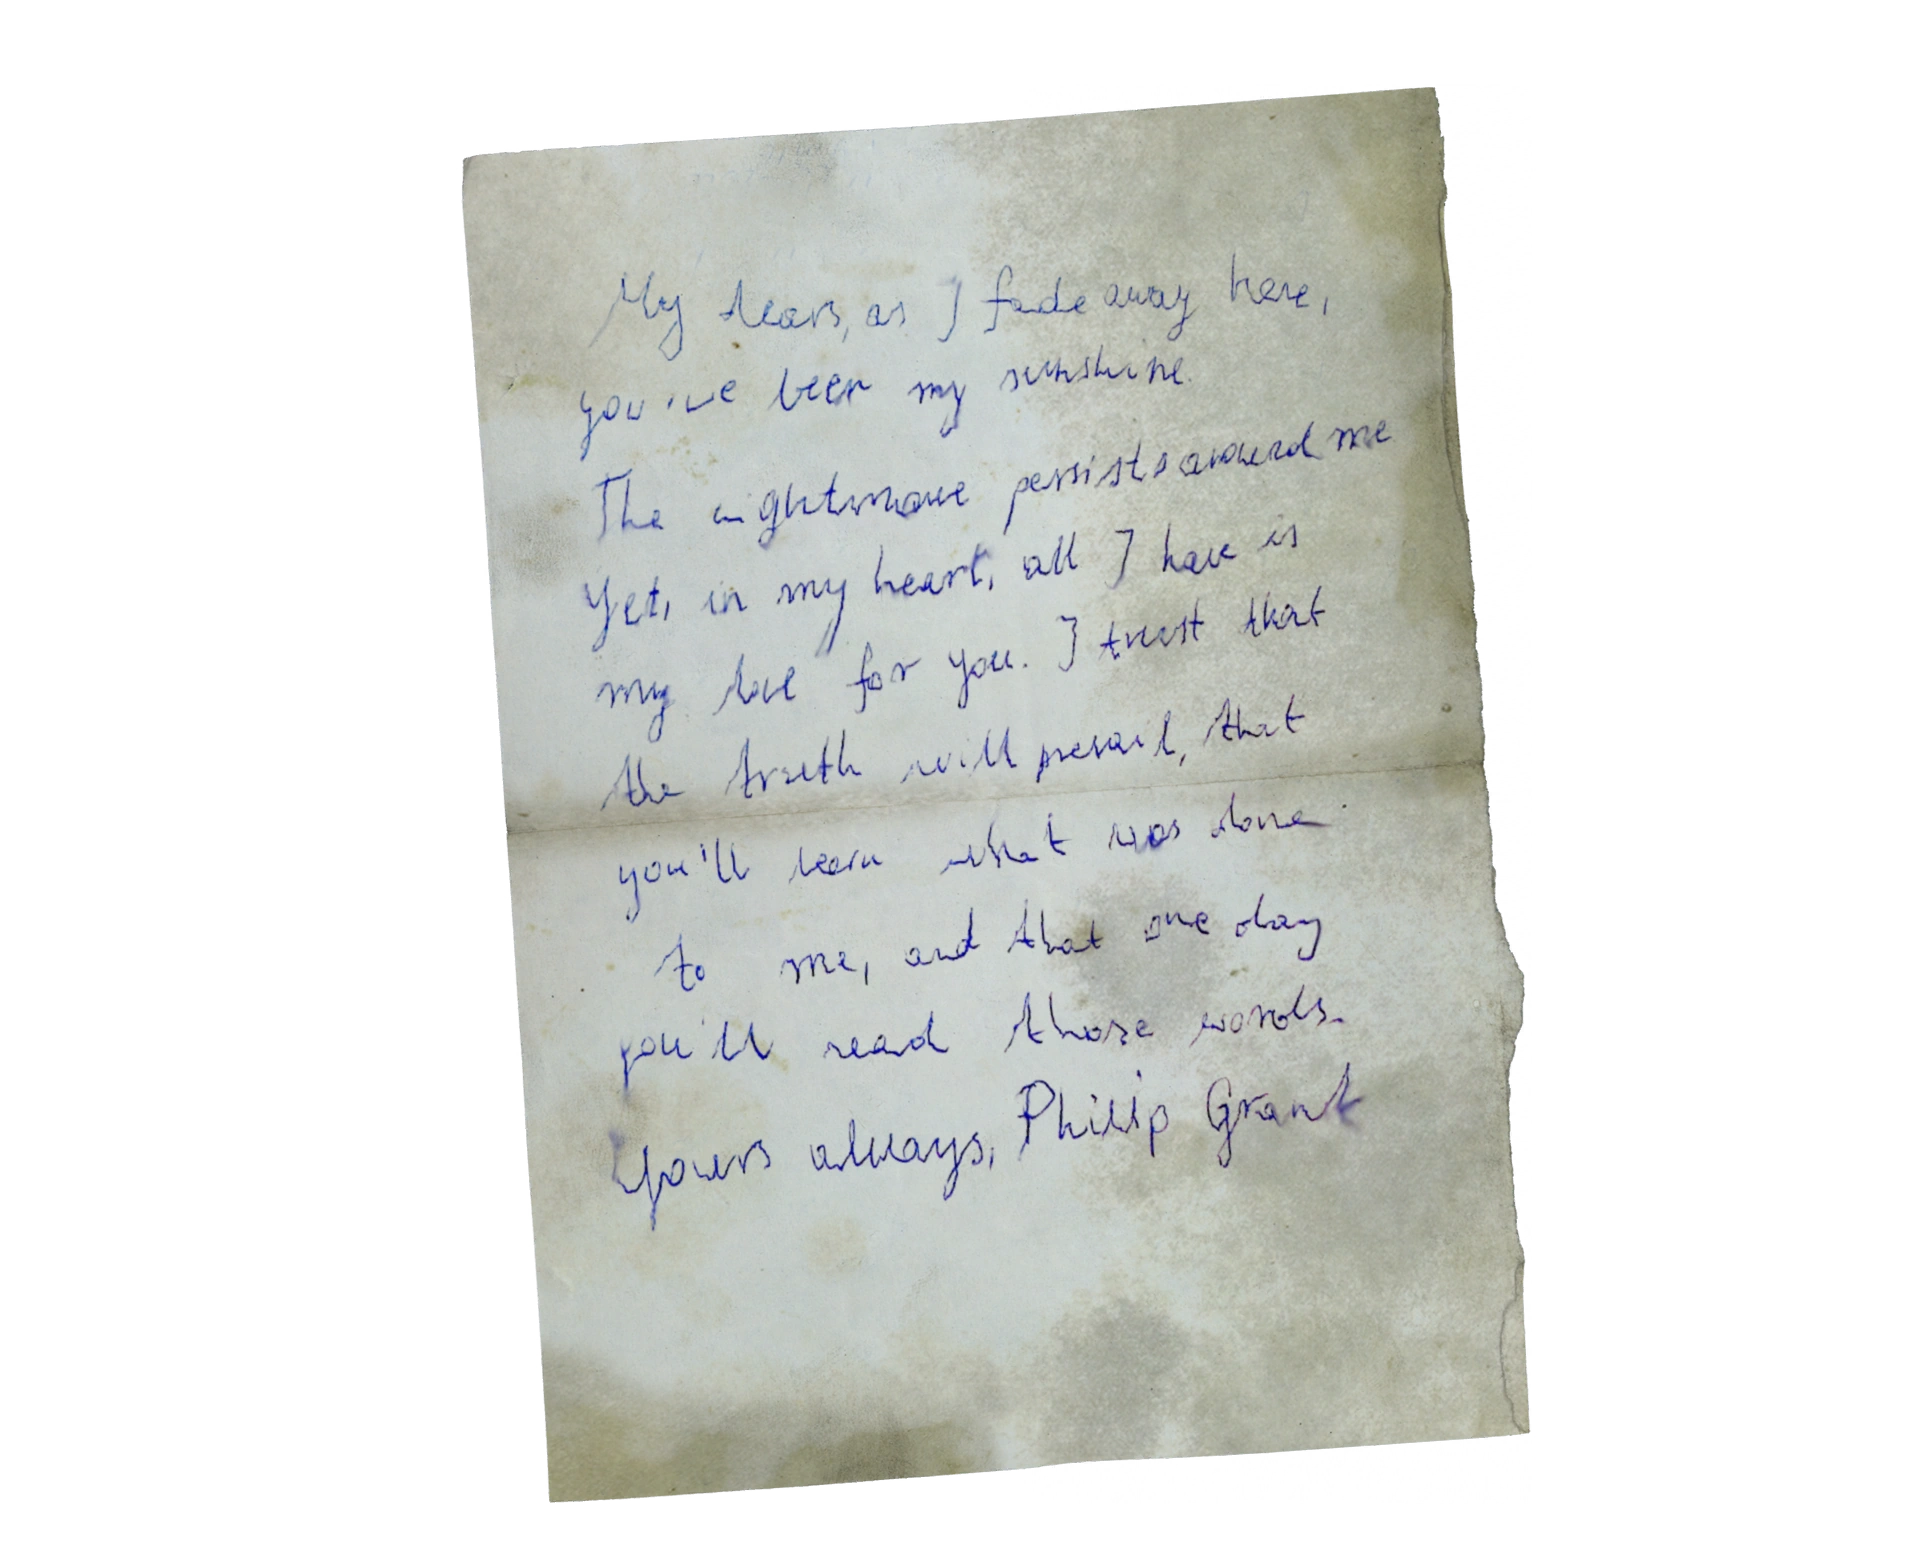 My dears, as I fade away here,
you've been my sunshine.
The nightmare persists around me
Yet, in my heart, all I have is
my love for you. I trust that
the truth will prevail, that
you'll learn what was done
to me, and that one day
you'll read those words.
Yours always, Philip Grant